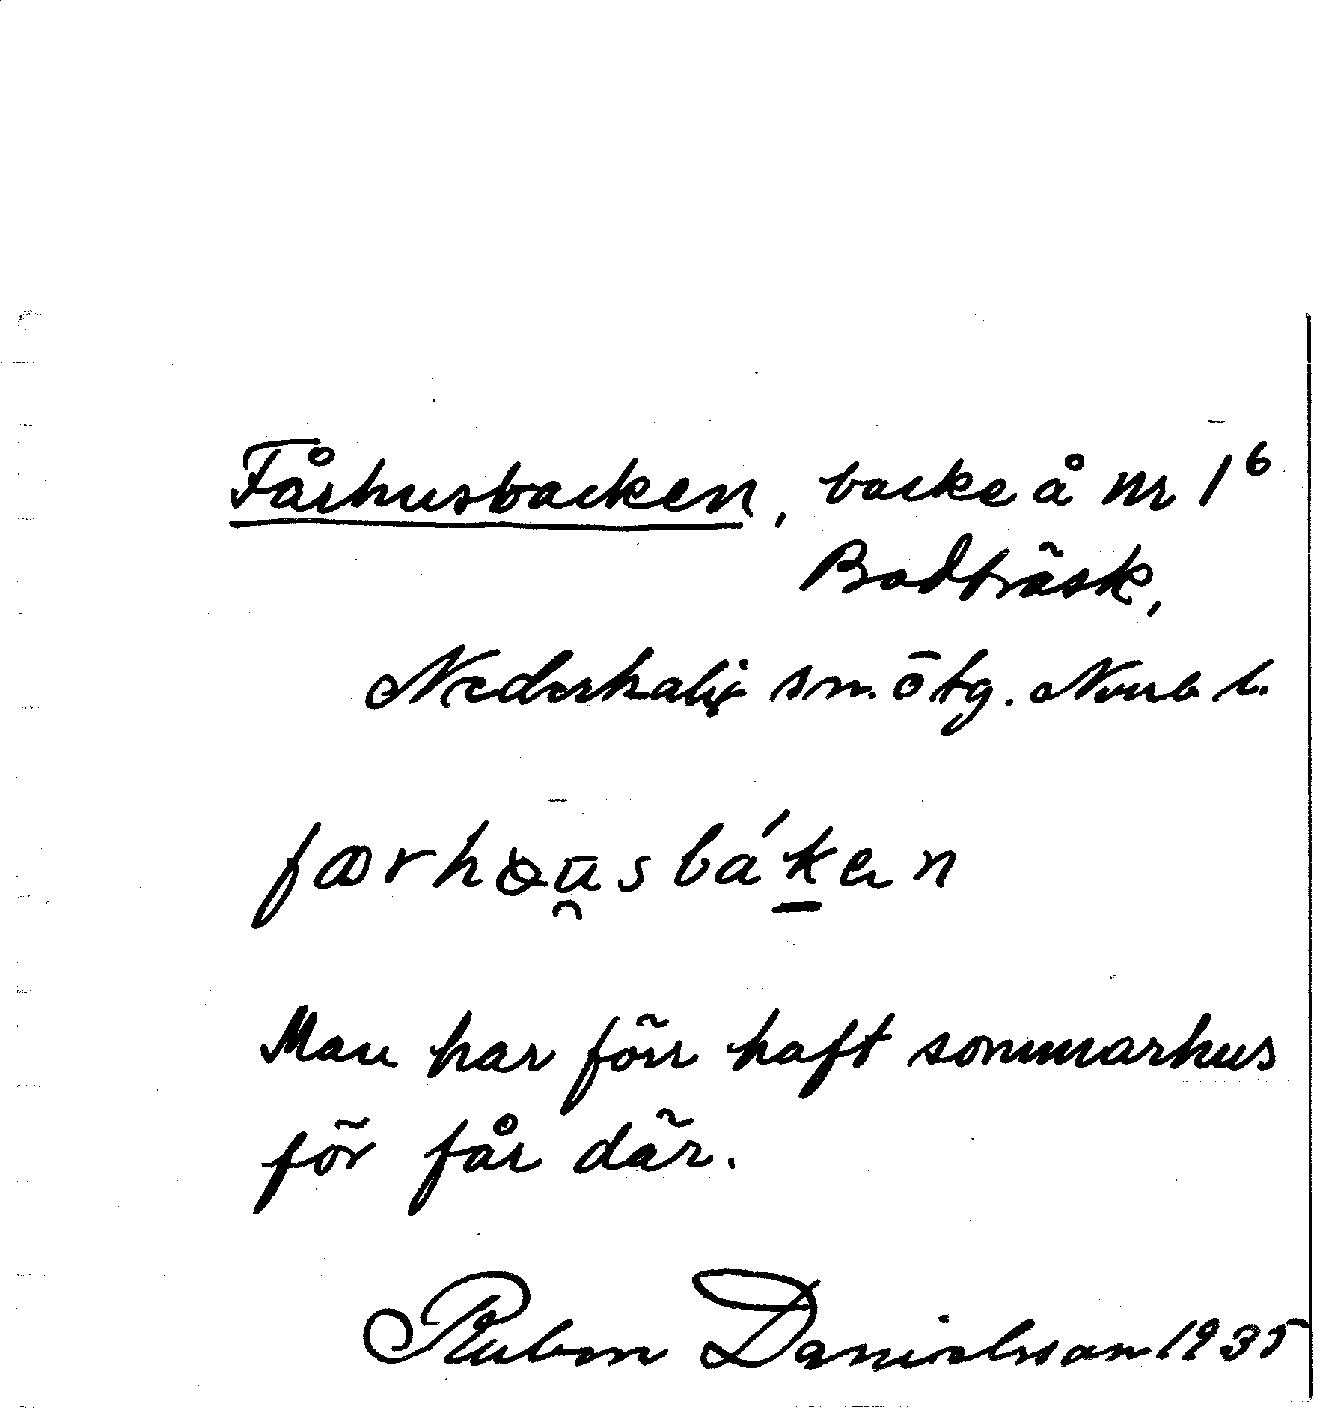 Fårhusbacken, backe å nr 1⁶
Bodträsk,
Nederkalix sn. ötg. Norrb l.
Man har förr haft sommarhus
för får där.
Ruben Danielsson 1935